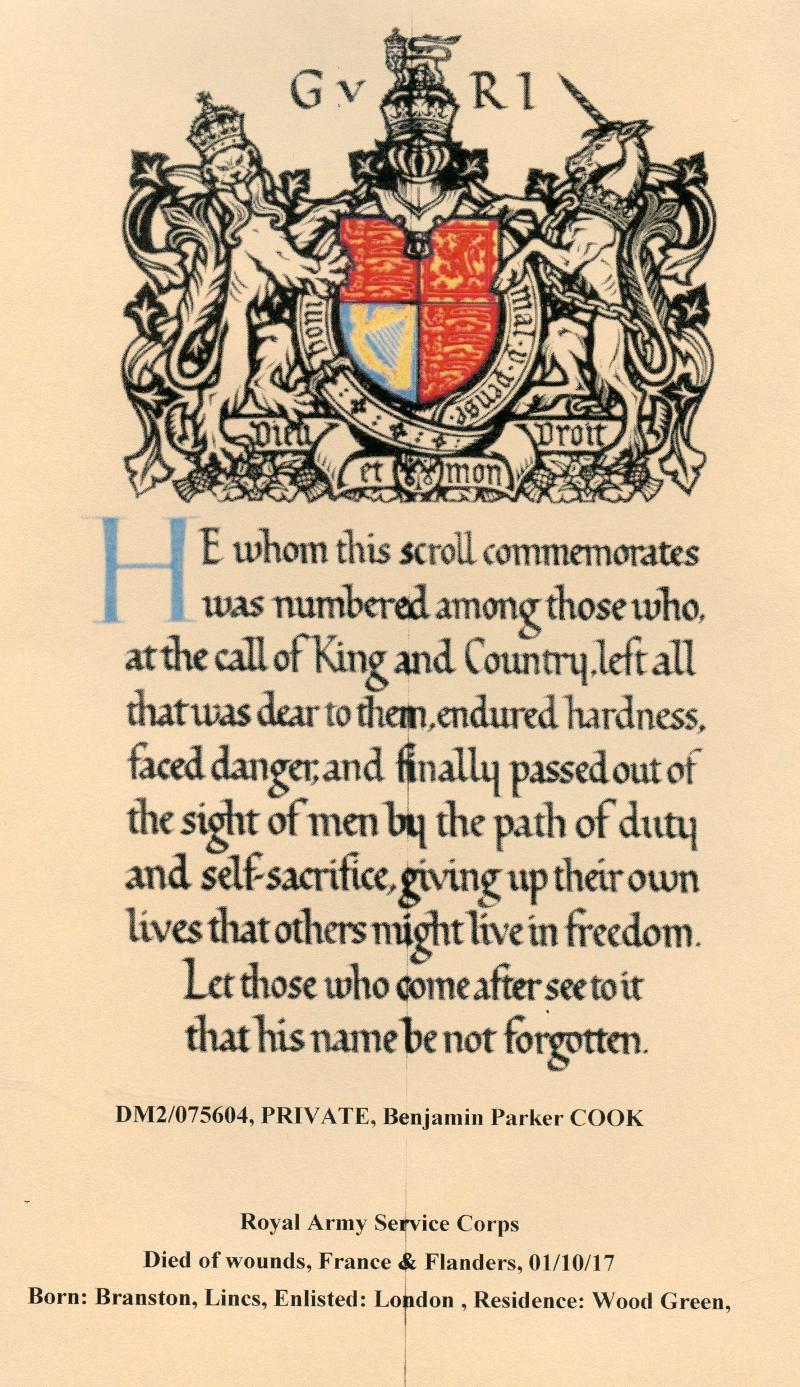 G V R I
honi mal·y·pense
Dieu Droit
et mon
HE whom this scroll commemorates
was numbered among those who,
at the call of King and Country, left all
that was dear to them, endured hardness,
faced danger, and finally passed out of
the sight of men by the path of duty
and self-sacrifice, giving up their own
lives that others might live in freedom.
Let those who come after see to it
that his name be not forgotten.
DM2/075604, PRIVATE, Benjamin Parker COOK
Royal Army Service Corps
Died of wounds, France & Flanders, 01/10/17
Born: Branston, Lincs, Enlisted: London , Residence: Wood Green,